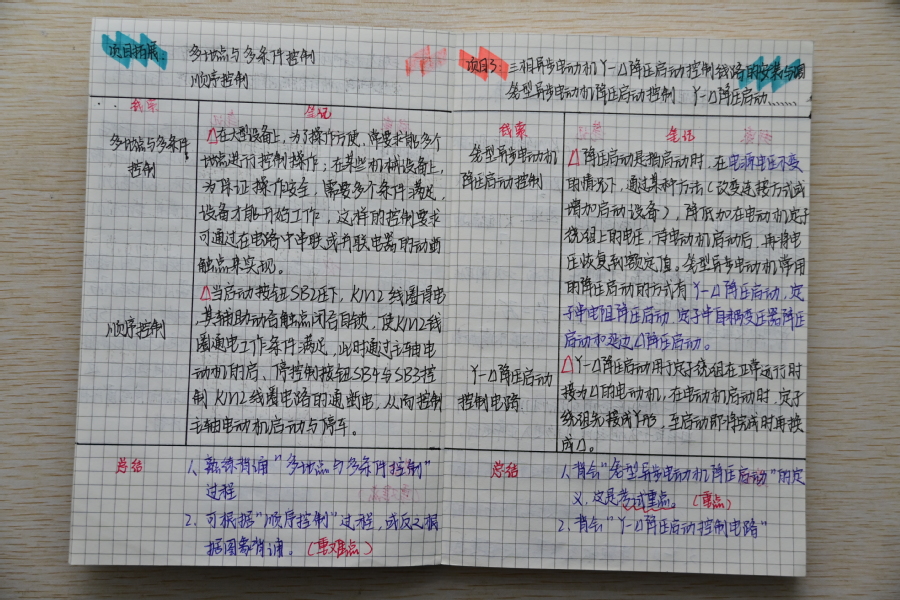 项目拓展: 多地点与多条件控制
顺序控制
线索
笔记
多地点与多条件
控制
△在大型设备上,为了操作方便,常要求能多个
地点进行控制操作;在某些机械设备上,
为保证操作安全,需要多个条件满足,
设备才能开始工作,这样的控制要求
可通过在电路中串联或并联电器的动断
触点来实现。
顺序控制
△当启动按钮SB2压下,KM2线圈得电
,其辅助动合触点闭合自锁,使KM2线
圈通电工作条件满足,此时通过主轴电
动机的启、停控制按钮SB4与SB3控
制KM2线圈电路的通断电,从而控制
主轴电动机启动与停车。
总结
1.熟练背诵“多地点与多条件控制”
过程
2.可根据“顺序控制”过程,或反之根
据图象背诵。(重难点)
项目3: 三相异步电动机Y-△降压启动控制线路的安装与调
笼型异步电动机降压启动控制 Y-△降压启动……
线索
笔记
笼型异步电动机
降压启动控制
△降压启动是指启动时,在电源电压不变
的情况下,通过某种方法(改变连接方式或
增加启动设备),降低加在电动机定子
绕组上的电压,待电动机启动后,再将电
压恢复到额定值。笼型异步电动机常用
的降压启动的方式有Y-△降压启动,定
子串电阻降压启动、定子串自耦变压器降压
启动和延边△降压启动。
Y-△降压启动
控制电路
△Y-△降压启动用于定子绕组在正常运行时
接为△的电动机,在电动机启动时,定子
绕组先接成Y形,至启动即将完成时再换
成△。
总结
1.背会“笼型异步电动机降压启动”的定
义,这是考试重点。(重点)
2.背会“Y-△降压启动控制电路”